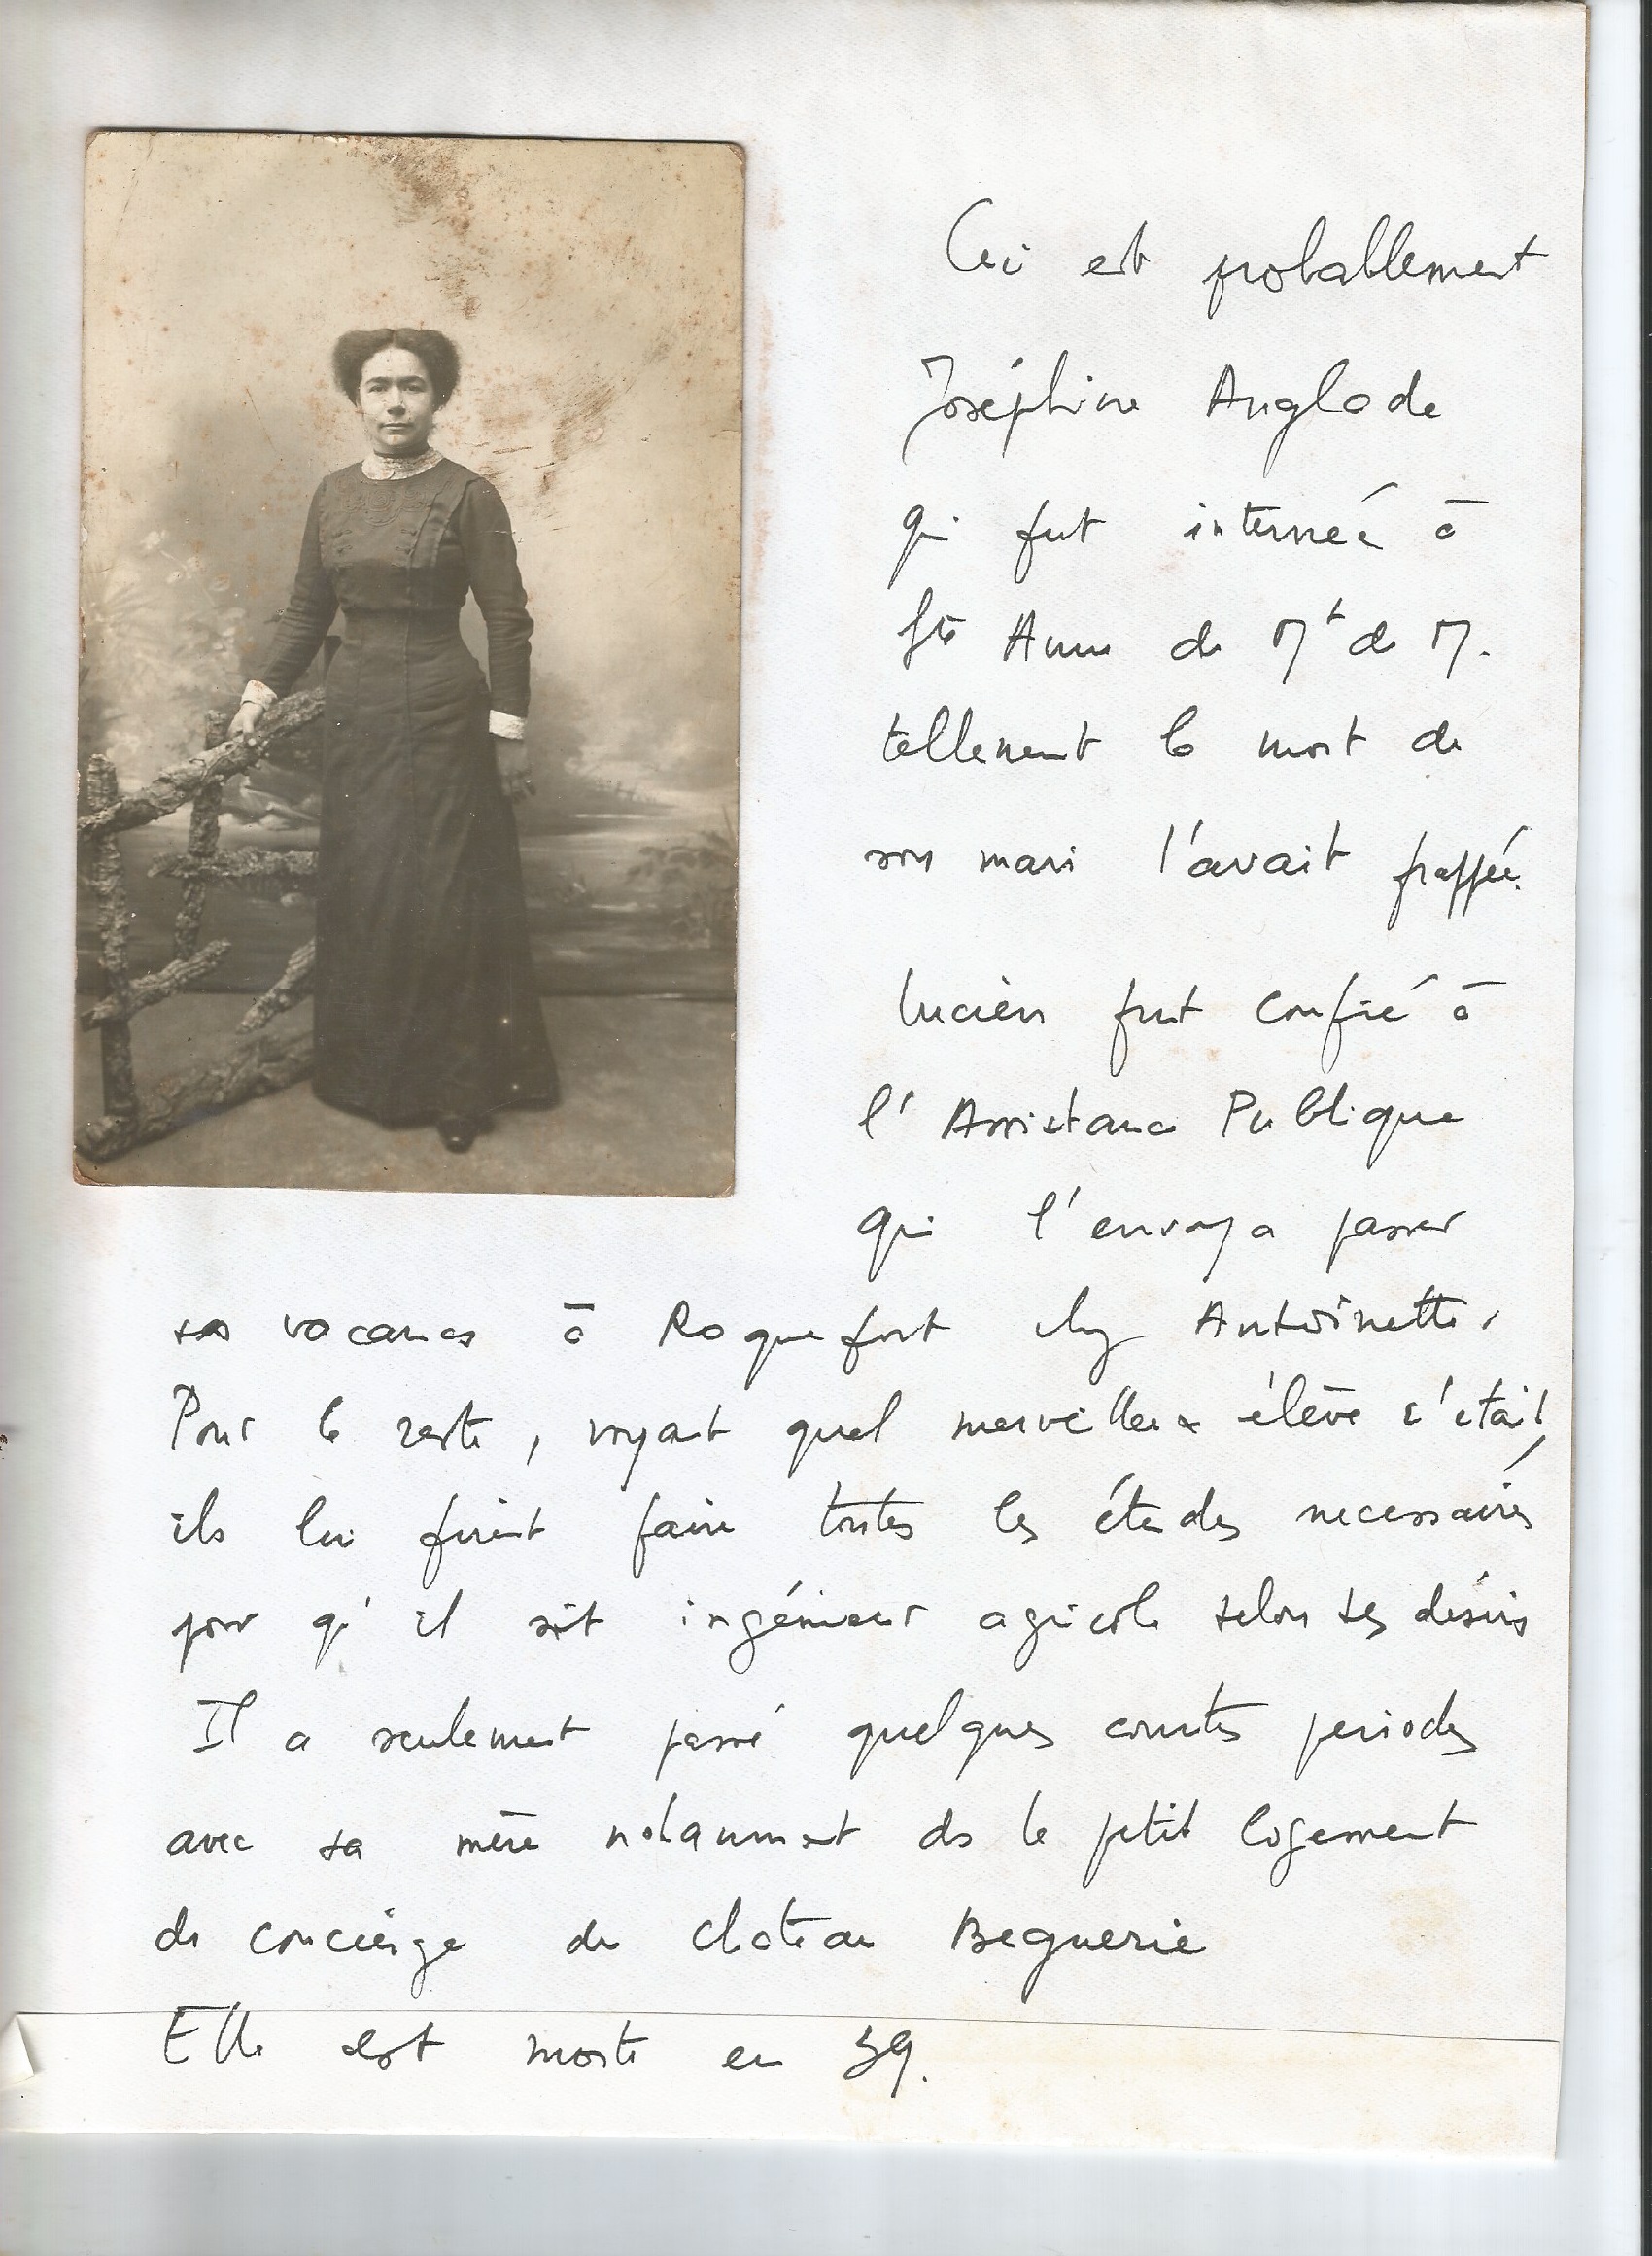 Ceci est probablement
Joséphine Anglade
qui fut internée à
Ste Anne de Mt de M.
tellement la mort de
son mari l'avait frappée.
Lucien fut confié à
l'Assistance Publique
qui l'envoya passer
ses vacances à Roquefort chez Antoinette.
Pour le reste, voyant quel merveilleux élève c'était,
ils lui firent faire toutes les études necessaires
pour qu'il soit ingénieur agricole selon ses désirs
Il a seulement passé quelques courtes periodes
avec sa mère notamment ds le petit logement
de concierge du chateau Beguerie
Elle est morte en 39.